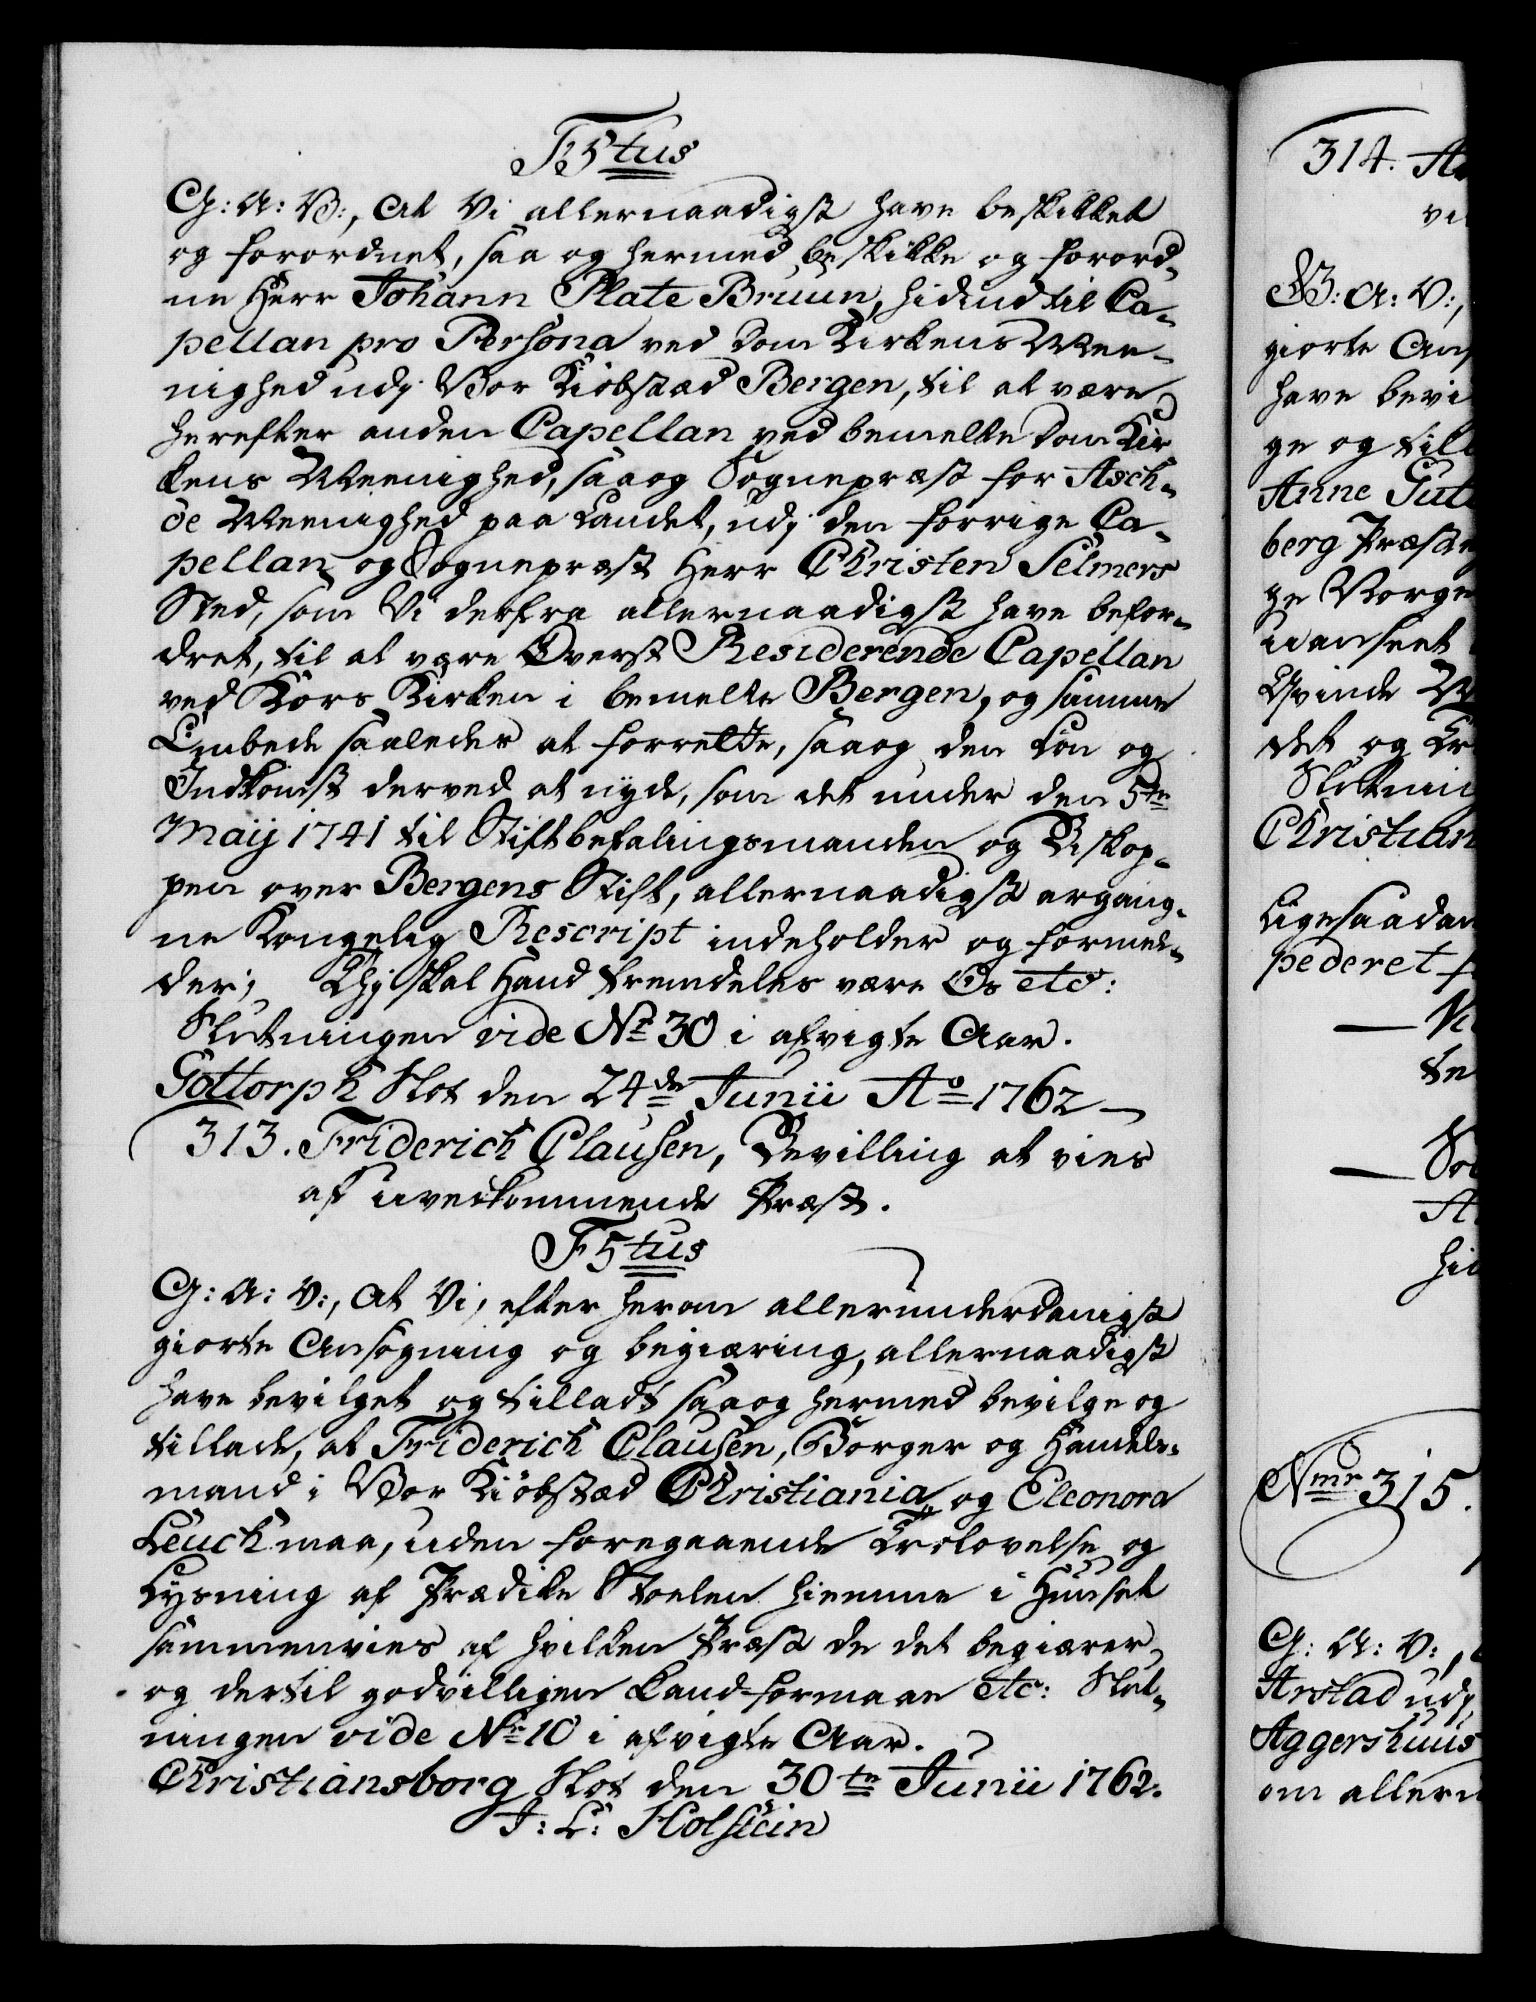 F5tus
G: A: V:, At Vi allernaadigst have beskikket
og forordnet, saa og hermed beskikke og forord-
ne Herr Johann Plate Bruun, hidindtil Ca-
pellan pro Persona ved Dom Kirkens Mee-
nighed udj Vor Kiøbstæd Bergen, til at være
herefter anden Capellan ved bemelte Dom Kir-
kens Meenighed, saa og Sognepræst for Asch-
öe Meenighed paa Landet, udj den forrige Ca-
pellan og Sognepræst Herr Christen Selmers
Sted, som Vi derfra allernaadigst have befor-
dret, til at være Øverst Residerende Capellan
ved Kors Kirken i bemelte Bergen, og samme
Embede saaledes at forrette, saa og den Løn og
Indkomst derved at nyde, som det under den 5te
Maij 1741 til Stiftbefalingsmanden og Biskop-
pen over Bergens Stift, allernaadigst ergang-
ne Kongelig Rescript indeholder og formel-
der; Thj skal Hand fremdeles være Os etc:
Slutningen vide No 30 i afvigte Aar.
Gottorph Slot den 24de Junii Ao 1762
313. Friderich Clausen, Bevilling at vies
af uvedkommende Præst.
F5tus
G: A: V:, At Vi, efter herom allerunderdanigst
giorte Ansøgning og begiæring, allernaadigst
have bevilget og tilladt saa og hermed bevilge og
tillade, at Friderich Clausen, Borger og Handels-
mand i Vor Kiøbstæd Christiania, og Eleonora
Leuch maa, uden foregaaende Trolovelse og
Lysning af Prædike Stoelen hiemme i Huuset
sammenvies af hvilken Præst de det begiærer,
og dertil godvilligen kand formaae etc: Slut-
ningen vide No 10 i afvigte Aar.
Christiansborg Slot den 30te Junii 1762.
J: L: Holstein
314.
G: A: V:,
giorte
have
ge og
Anne
berg
ge
uanseet
Qvinde
det og
Christian
Ligesaadan
pederet
Nmr 315.
G: A: V:,
Arstad udj
Aggershuus
om